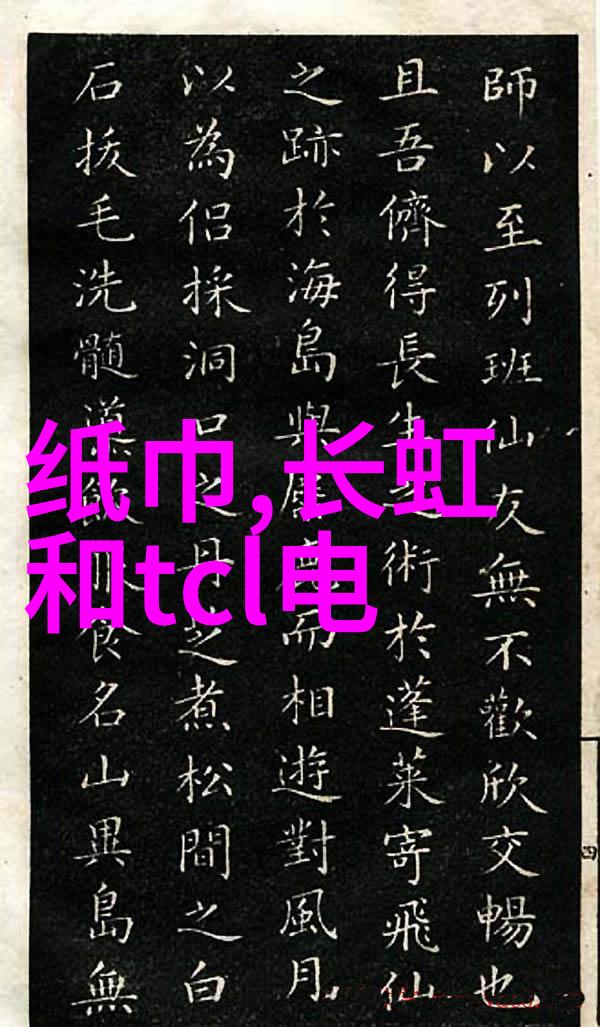 師以至列班仙友無不歡欣交暢也
且吾儕得長生之術於蓬萊寄飛仙
之跡於海島與而相遊對風月
以為侶採洞口之丹煮松間之白
石拔毛洗髓食名山異島無
四
纸巾,长虹
和tcl电